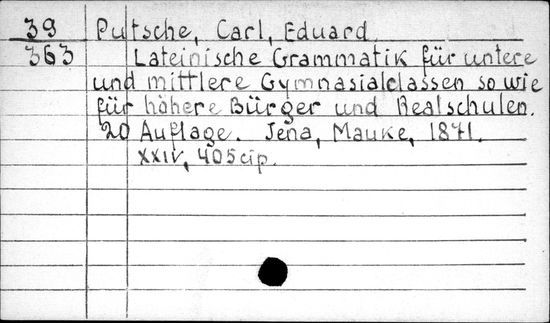 39 Putsche, Carl, Eduard
363 Lateinische Grammatik für untere
und mittlere Gymnasialclassen sowie
für höhere Bürger und Realschulen.
20 Auflage. Jena, Mauke, 1871.
XXIV, 405 cip.